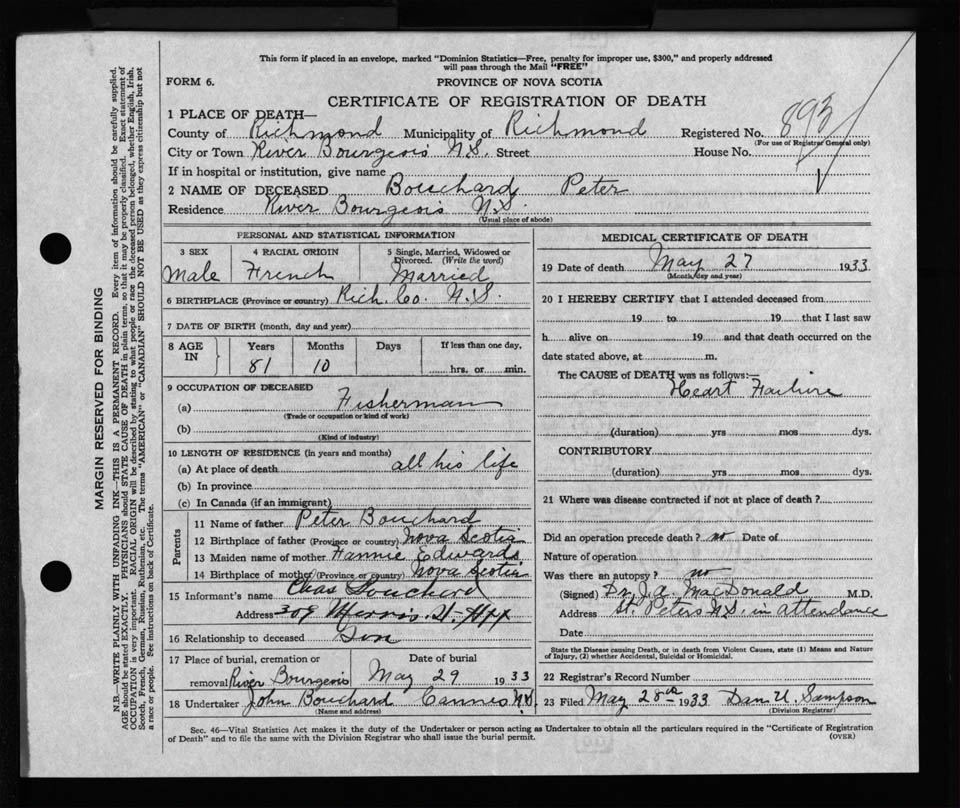 This form if placed in an envelope, marked "Dominion Statistics—Free, penalty for improper use, $300," and properly addressed
will pass through the Mail "FREE"
FORM 6.
PROVINCE OF NOVA SCOTIA
CERTIFICATE OF REGISTRATION OF DEATH
1 PLACE OF DEATH—
County of Richmond Municipality of Richmond Registered No. 893
(For use of Registrar General only)
City or Town River Bourgeois N.S. Street House No.
If in hospital or institution, give name
2 NAME OF DECEASED Bouchard, Peter
Residence River Bourgeois N.S.
(Usual place of abode)
PERSONAL AND STATISTICAL INFORMATION
3 SEX 4 RACIAL ORIGIN 5 Single, Married, Widowed or
Divorced. (Write the word)
Male French Married
6 BIRTHPLACE (Province or country) Rich. Co. N.S.
7 DATE OF BIRTH (month, day and year)
8 AGE IN Years Months Days If less than one day,
81 10 hrs. or min.
9 OCCUPATION OF DECEASED
(a) Fisherman
(Trade or occupation or kind of work)
(b)
(Kind of industry)
10 LENGTH OF RESIDENCE (in years and months)
(a) At place of death all his life
(b) In province
(c) In Canada (if an immigrant)
Parents
11 Name of father Peter Bouchard
12 Birthplace of father (Province or country) Nova Scotia
13 Maiden name of mother Fannie Edwards
14 Birthplace of mother (Province or country) Nova Scotia
15 Informant's name Chas Bouchard
Address 309 Morris St. Hfx
16 Relationship to deceased Son
17 Place of burial, cremation or Date of burial
removal River Bourgeois May 29 1933
18 Undertaker John Bouchard Cannes N.S.
(Name and address)
MEDICAL CERTIFICATE OF DEATH
19 Date of death May 27 1933
(Month, day and year)
20 I HEREBY CERTIFY that I attended deceased from
19 to 19 that I last saw
h alive on 19 and that death occurred on the
date stated above, at m.
The CAUSE of DEATH was as follows:—
Heart Failure
(duration) yrs mos dys.
CONTRIBUTORY
(duration) yrs. mos. dys.
21 Where was disease contracted if not at place of death?
Did an operation precede death? no Date of
Nature of operation
Was there an autopsy? no
(Signed) Dr. J.A. MacDonald M.D.
Address St. Peters N.S. in attendance
Date
State the Disease causing Death, or in death from Violent Causes, state (1) Means and Nature
of Injury, (2) whether Accidental, Suicidal or Homicidal.
22 Registrar's Record Number
23 Filed May 28th 1933 Dan U. Sampson
(Division Registrar)
Sec. 46—Vital Statistics Act makes it the duty of the Undertaker or person acting as Undertaker to obtain all the particulars required in the "Certificate of Registration
of Death" and to file the same with the Division Registrar who shall issue the burial permit.
(OVER)
MARGIN RESERVED FOR BINDING
N.B.—WRITE PLAINLY WITH UNFADING INK—THIS IS A PERMANENT RECORD. Every item of information should be carefully supplied.
AGE should be stated EXACTLY. PHYSICIANS should STATE CAUSE OF DEATH in plain terms, so that it may be properly classified. Exact statement of
OCCUPATION is very important. RACIAL ORIGIN will be described by stating to what people or race the deceased person belonged, whether English, Irish,
Scotch, French, German, Russian, Ruthenian, etc. The terms "AMERICAN" or "CANADIAN" SHOULD NOT BE USED as they express citizenship but not
a race or people. See instructions on back of Certificate.